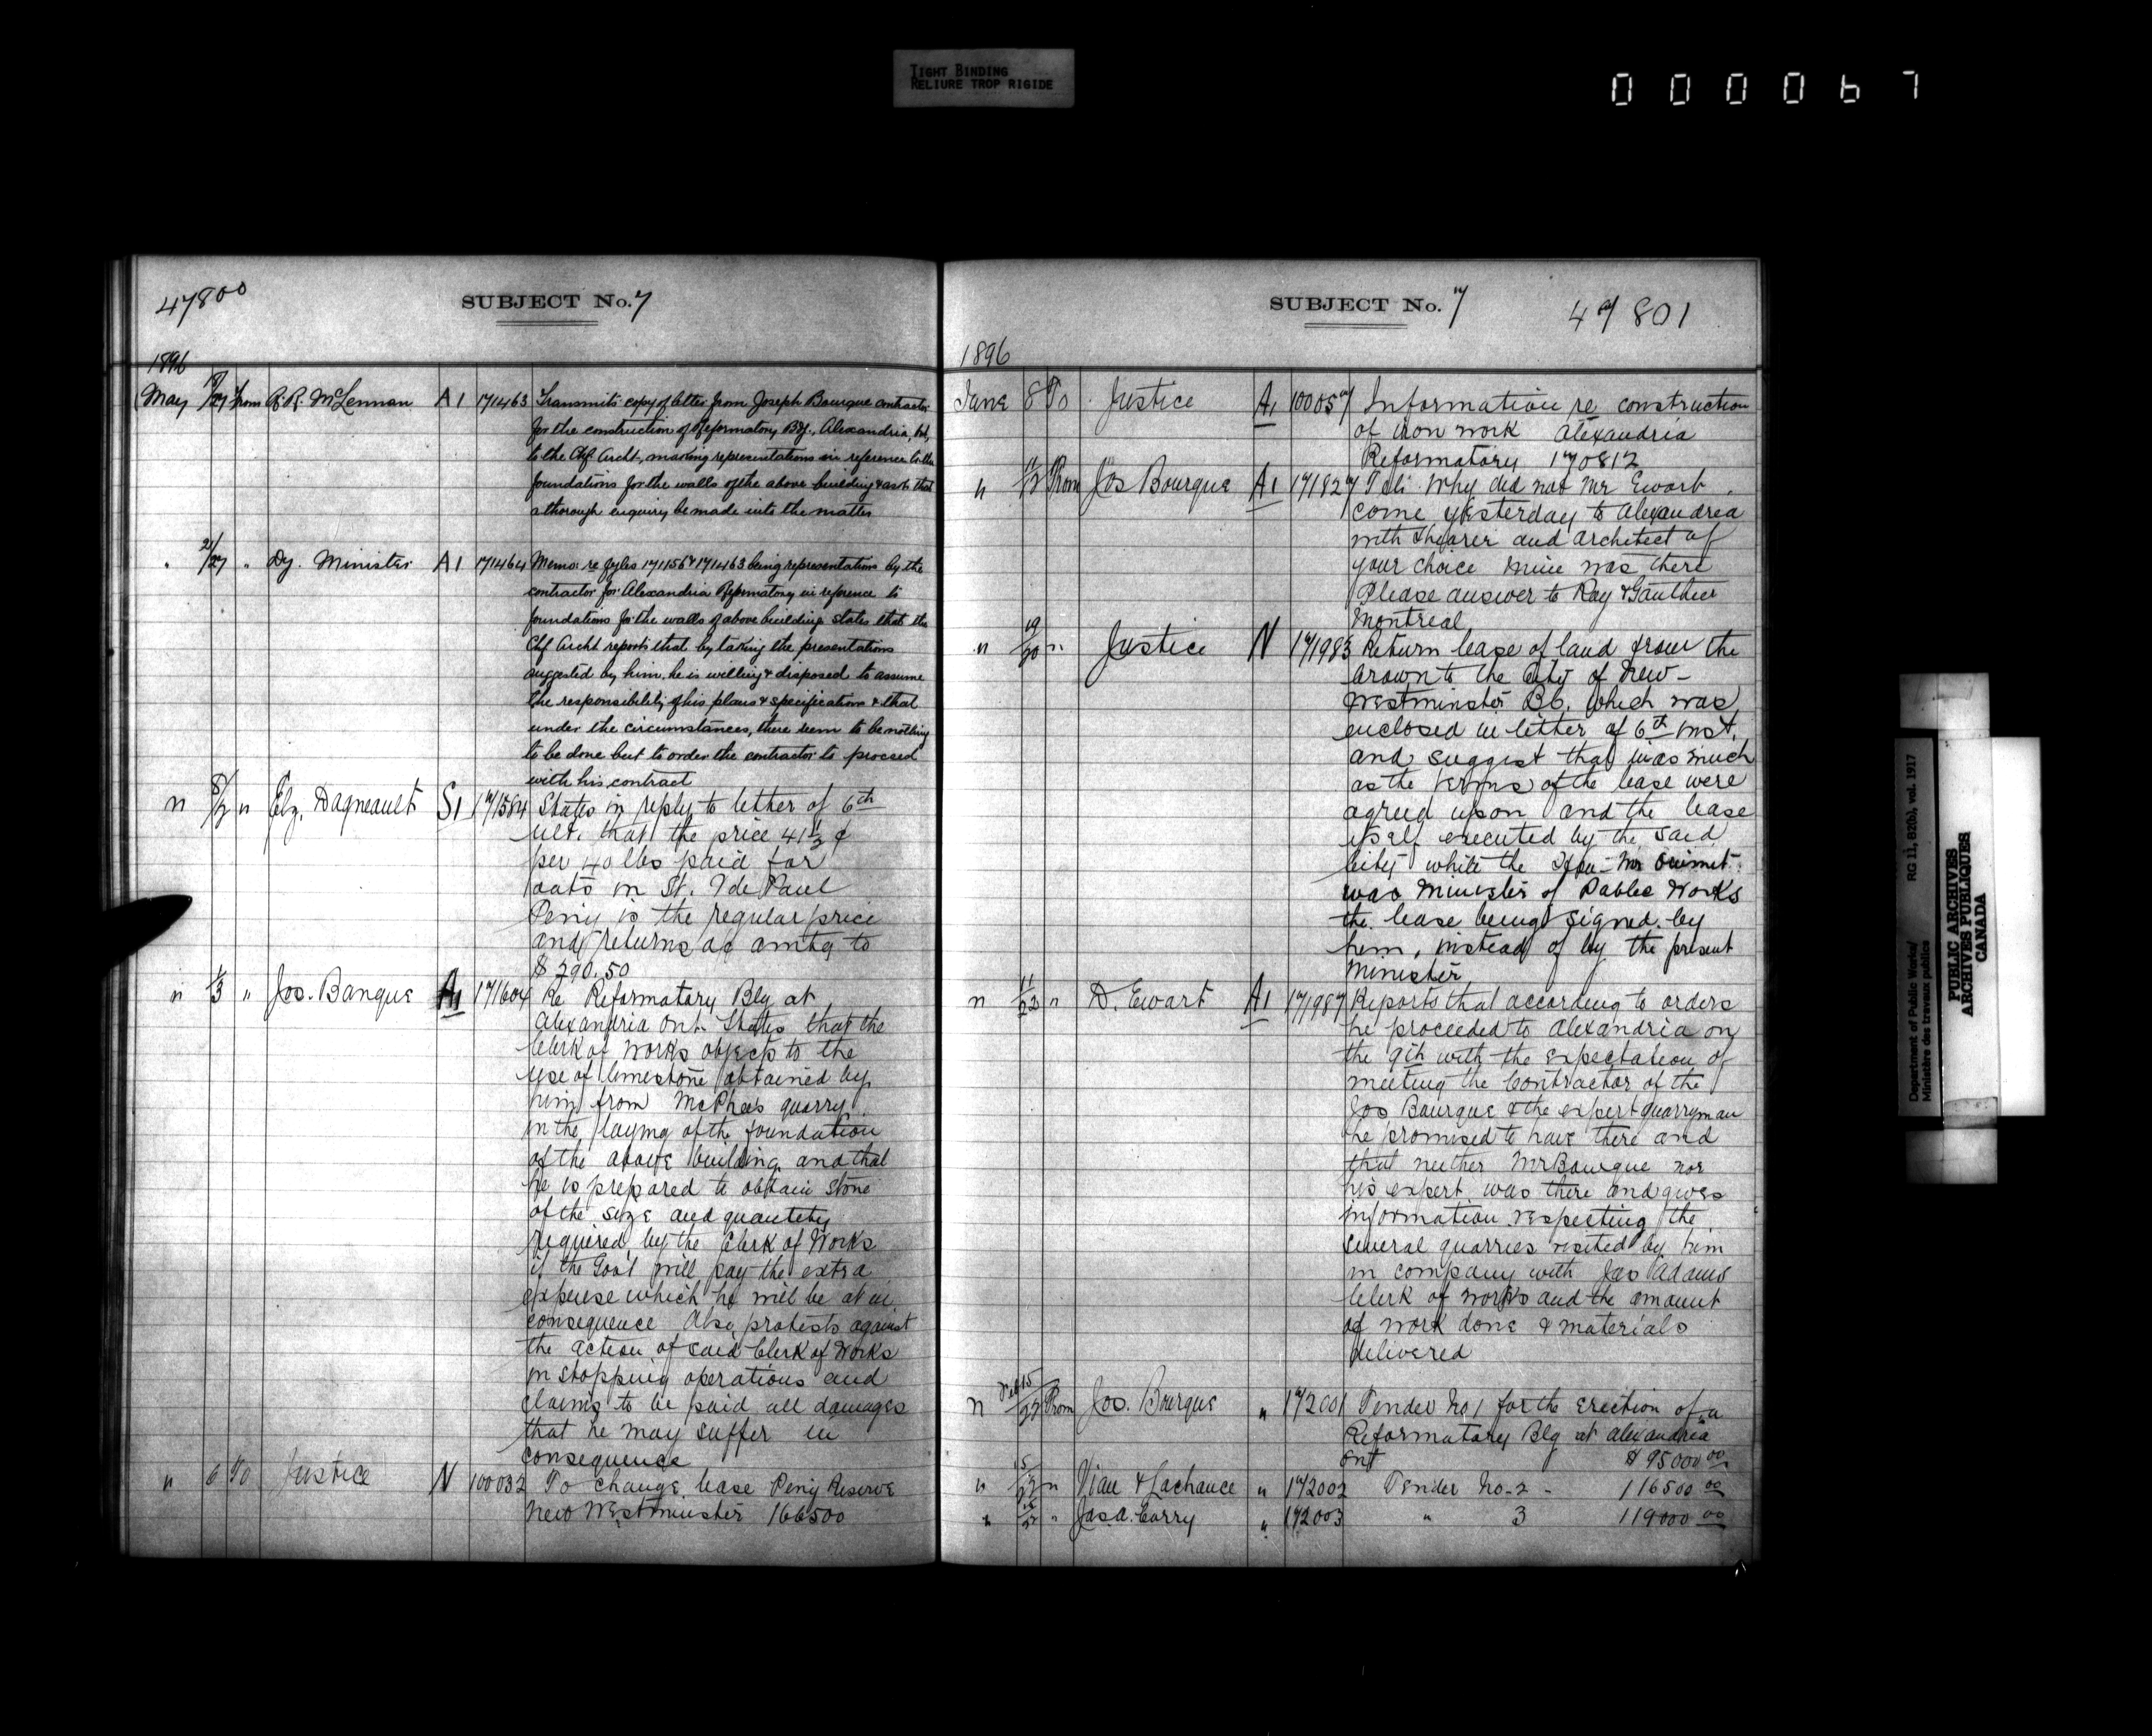 TIGHT BINDING
RELIURE TROP RIGIDE
000067
47800
SUBJECT No. 7
1896
May 18/27 From R. R. McLennan A1 171463 Transmits copy of letter from Joseph Bourque contractor
for the construction of Reformatory Bg., Alexandria, Ont,
to the Chf Archt, making representations in reference to the
foundations for the walls of the above building & asks that
a thorough enquiry be made into the matter
" 21/27 " Dy. Minister A1 171464 Memo: re fyles 171156 & 171463 being representations by the
contractor for Alexandria Reformatory in reference to
foundations for the walls of above building states that the
Chf Archt reports that by taking the presentations
suggested by him, he is willing & disposed to assume
the responsibility of his plans & specification & that
under the circumstances, there seem to be nothing
to be done but to order the contractor to proceed
with his contract
" " Elz. Dagneault S1 171584 States in reply to letter of 6th
ult. that the price 41 1/2 ¢
per 40 lbs paid for
oats in St. V de Paul
Peny is the regular price
and returns ac amtg to
$ 290.50
" 1/3 " Jos. Banque A1 171604 Re Reformatory Blg at
Alexandria Ont. States that the
Clerk of Works objects to the
use of limestone obtained by
him from McPhees quarry
in the laying of the foundation
of the above building and that
he is prepared to obtain stone
of the size and quantity
required by the Clerk of Works
if the Govt will pay the extra
expense which he will be at in
consequence Also protests against
the action of said Clerk of Works
in stopping operations and
claims to be paid all damages
that he may suffer in
consequence
" 6 To Justice N 100032 To change lease Peny Reserve
New Westminster 166500
SUBJECT No. 7
47801
1896
June 8 To Justice A1 100057 Information re construction
of iron work Alexandria
Reformatory 170812
" 11/12 From Jos Bourque A1 171827 Tel: Why did not Mr Ewart
come yesterday to Alexandria
with Shearer and architect of
your choice mine was there
Please answer to Ray & Gauthier
Montreal
" 19/20 " Justice N 171983 Return lease of land from the
Crown to the City of New-
Westminster BC. which was
enclosed in letter of 6th inst.
and suggest that inasmuch
as the terms of the lease were
agreed upon and the lease
itself executed by the said
City while the Hon Mr Ouimet
was Minister of Public Works
the lease being signed by
him, instead of by the present
Minister
" 11/22 " D. Ewart A1 171987 Reports that according to orders
he proceeded to Alexandria on
the 9th with the expectation of
meeting the Contractor of the
Jos Bourque & the expert quarryman
he promised to have there and
that neither Mr Bourque nor
his expert was there and gives
information respecting the
several quarries visited by him
in company with Jas Adams
Clerk of Works and the amount
of work done & materials
delivered
" Feb 15/22 From Jos. Bourque " 172001 Tender No 1 for the erection of a
Reformatory Blg at Alexandria
Ont $ 95000 00
" 15/22 " Viau & Lachance " 172002 Tender No. 2 - 116500 00
" " Jas. A. Corry " 172003 " 3 119000 00
Department of Public Works/
Ministère des travaux publics
RG 11, B2(b), vol. 1917
PUBLIC ARCHIVES
ARCHIVES PUBLIQUES
CANADA